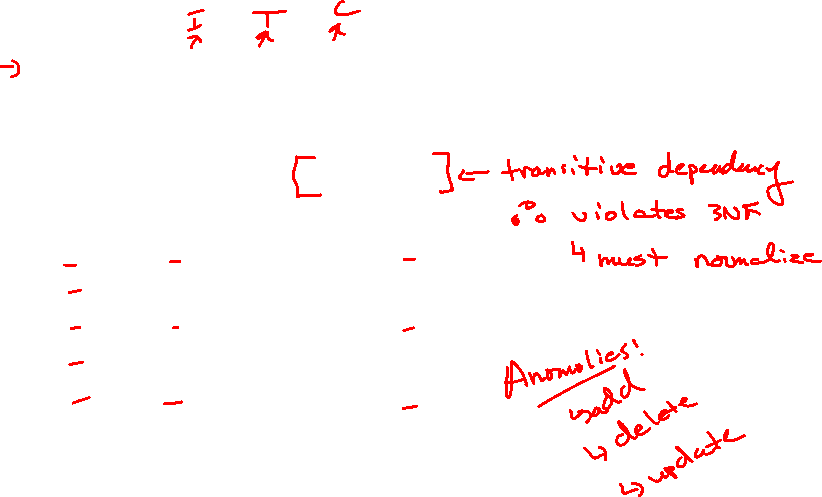 I T C
[ ] ← transitive dependency
∴ violates 3NF
↳ must normalize
Anomolies:
↳ add
↳ delete
↳ update